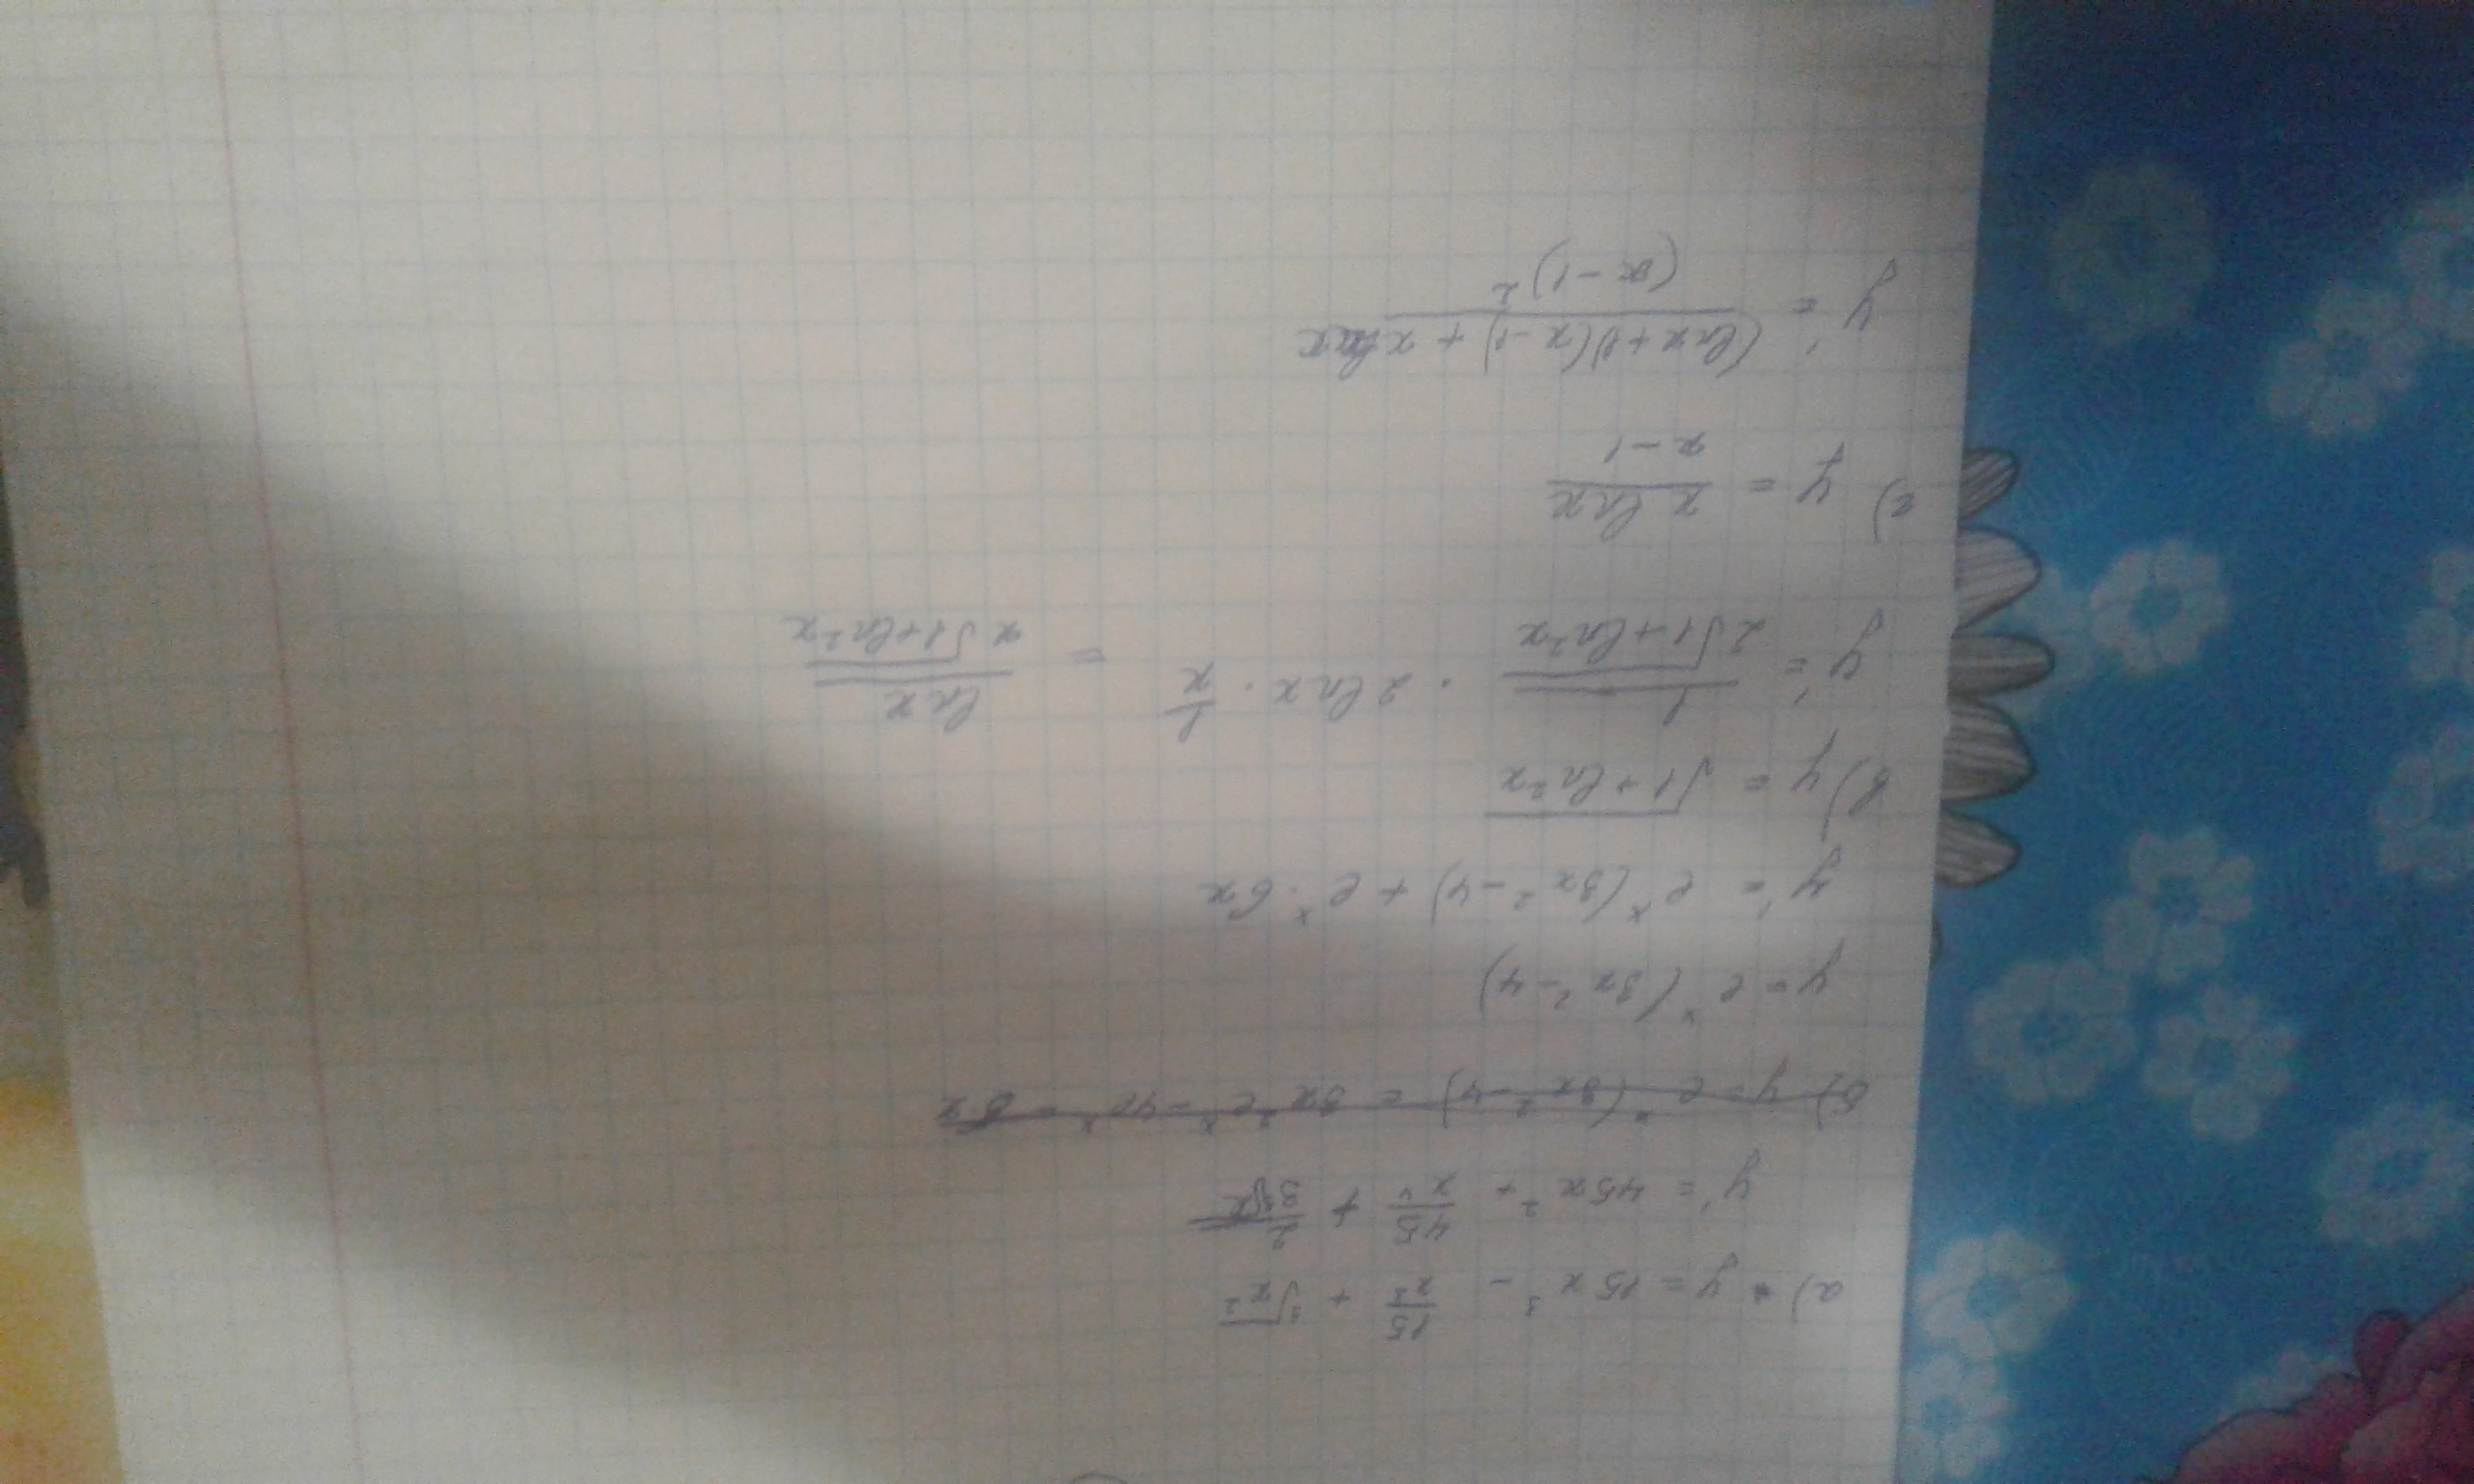 а) y = 15x³ - 15/x³ + ³√x²
y' = 45x² + 45/x⁴ + 2/3³√x
б) y = eˣ(3x² - 4) = 3x²eˣ - 4eˣ = 6x
y = eˣ(3x² - 4)
y' = eˣ(3x² - 4) + eˣ · 6x
в) y = √1 + ln²x
y' = 1/2√1 + ln²x · 2 ln x · 1/x = ln x/x√1 + ln²x
г) y = x ln x/x - 1
y' = (ln x + 1)(x - 1) + x ln x/(x - 1)²